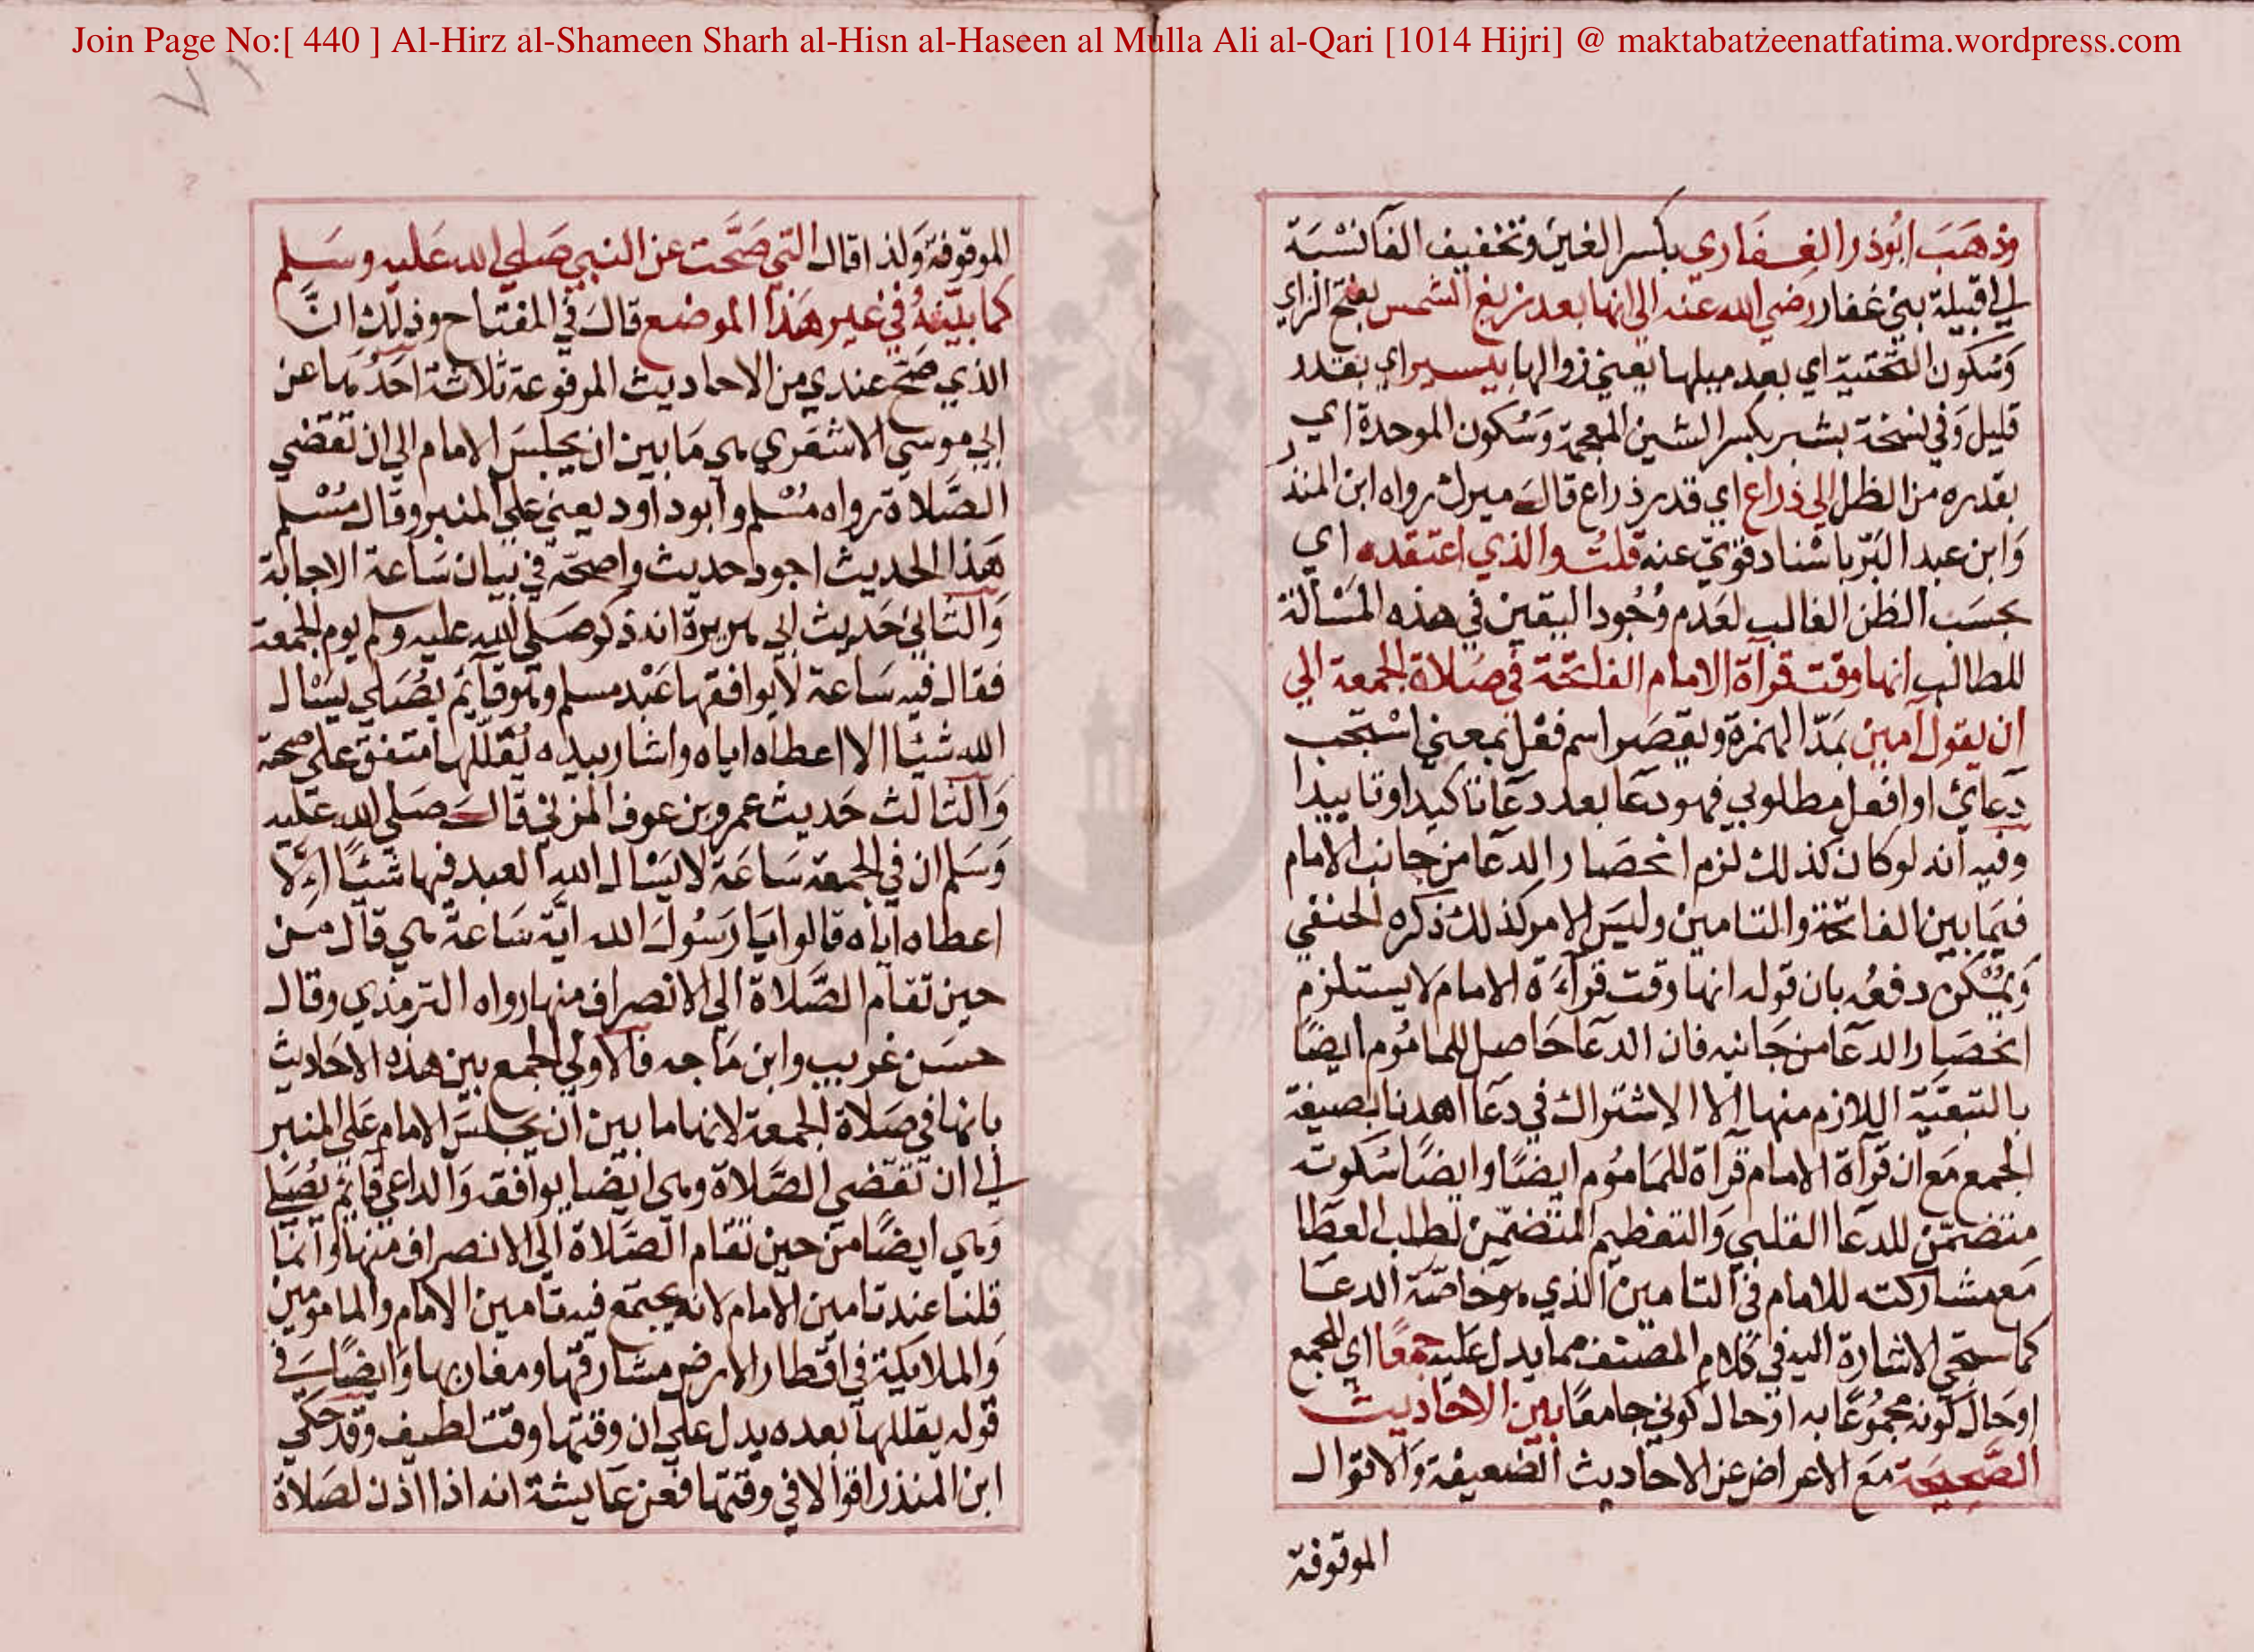 Join Page No:[ 440 ] Al-Hirz al-Shameen Sharh al-Hisn al-Haseen al Mulla Ali al-Qari [1014 Hijri] @ maktabatzeenatfatima.wordpress.com
وذهب ابوذر الغفاري بكسر الغين وتخفيف الفا نسبة
الي قبيلة بني غفار رضي الله عنه الي انها بعد زيغ الشمس بفتح الزاي
وسكون التحتية اي بعد ميلها يعني زوالها بيسير اي بقدر
قليل وفي نسخة بشبر بكسر الشين المعجمة وسكون الموحدة اي
بقدره من الظل الي ذراع اي قدر ذراع قال ميرك رواه ابن المنذر
وابن عبد البر باسناد قوي عنه قلت والذي اعتقده اي
بحسب الظن الغالب لعدم وجود اليقين في هذه المسألة
للمطالب انها وقت قرآة الامام الفاتحة في صلاة الجمعة الي
ان يقول آمين بمد الهمزة ويقصر اسم فعل بمعني استجب
دعائ او افعل مطلوبي فهو دعا بعد دعا تاكيدا وتاييدا
وفيه انه لو كان كذلك لزم انحصار الدعا من جانب الامام
فيما بين الفاتحة والتامين وليس الامر كذلك ذكره الحنفي
ويمكن دفعه بان قوله انها وقت قرآءة الامام لا يستلزم
انحصار الدعا من جانبه فان الدعا حاصل للماموم ايضا
بالتبعية اللازم منها الا الاشتراك في دعا اهدنا بصيغة
الجمع مع ان قرآة الامام قرآة للماموم ايضا وايضا سكوته
متضمن للدعا القلبي والتعظيم المتضمن لطلب العطا
مع مشاركته للامام في التامين الذي هو خاصة الدعا
كما ستجي الاشارة اليه في كلام المصنف مما يدل عليه جمعا اي للجمع
او حال كونه مجموعا به او حال كوني جامعا بين الاحاديث
الصحيحة مع الاعراض عن الاحاديث الضعيفة والاقوال
الموقوفة
الموقوفة ولذا قال التي صحت عن النبي صلي الله عليه وسلم
كما بينته في غير هذا الموضع قال في المفتاح وذلك ان
الذي صح عندي من الاحاديث المرفوعة ثلاثة احدها عن
ابي موسي الاشعري هي ما بين ان يجلس الامام الي ان تقضي
الصلاة رواه مسلم وابو داود يعني علي المنبر وقال مسلم
هذا الحديث اجود حديث واصحه في بيان ساعة الاجابة
والثاني حديث ابي هريرة انه ذكر صلي الله عليه وسلم يوم الجمعة
فقال فيه ساعة لا يوافقها عبد مسلم وهو قآئم يصلي يسال
الله شيا الا اعطاه اياه واشار بيده يقللها متفق علي صحته
والثالث حديث عمرو بن عوف المزني قال صلي الله عليه
وسلم ان في الجمعة ساعة لا يسال الله العبد فيها شيئا الا
اعطاه اياه قالوا يا رسول الله اية ساعة هي قال من
حين تقام الصلاة الي الانصراف منها رواه الترمذي وقال
حسن غريب وابن ماجه فالاولي الجمع بين هذه الاحاديث
بانها في صلاة الجمعة لانها ما بين ان يجلس الامام علي المنبر
الي ان تقضي الصلاة وهي ايضا يوافقه والداعي قآئم يصلي
وهي ايضا من حين تقام الصلاة الي الانصراف منها وانما
قلنا عند تامين الامام لانه يجتمع فيه تامين الامام والمامومين
والملايكة في اقطار الارض مشارقها ومغاربها وايضا في
قوله يقللها بعده يدل علي ان وقتها وقت لطيف وقد حكي
ابن المنذر اقوالا في وقتها فعن عايشة انه اذا اذن لصلاة